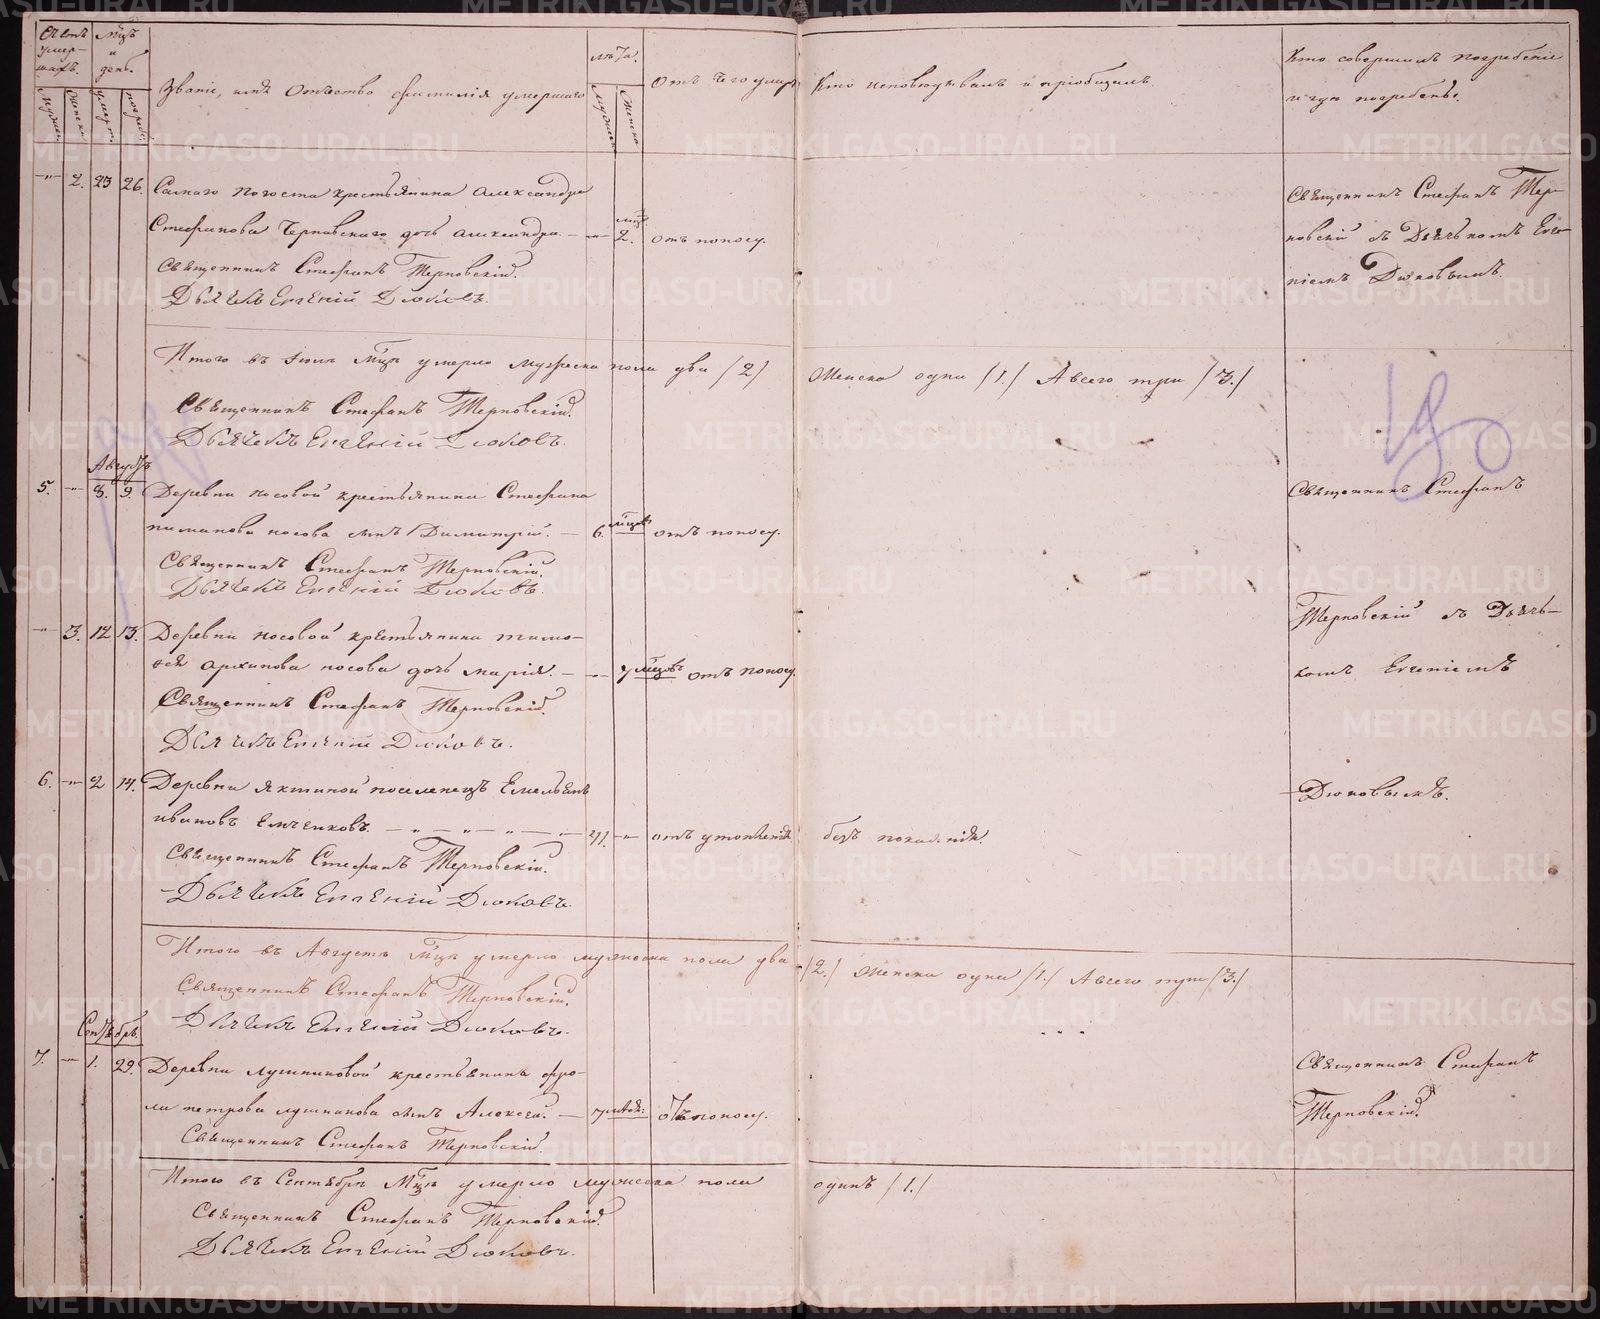 Счетъ умер-
шихъ.
Мѣсц. и день.
Званіе, имя Отчество фамилія умершаго
Лѣта.
Отъ чего умеръ
Кто исповѣдывалъ и пріобщалъ.
Кто совершилъ погребеніе
и гдѣ погребенъ.
Мужеска
Женска
умерт.
погреб.
Мужеска
Женска
-"- 2. 23 26. Самаго погоста крестьянина Александра
Стефанова Чернавскаго дочь Александра. -"- мц. 2. отъ поносу.
Священникъ Стефанъ Терновскій.
Дьячекъ Евгеній Дюковъ.
Священникъ Стефанъ Тер-
новскій съ Дьячкомъ Евге-
ніемъ Дюковымъ.
Итого въ Іюлѣ Мцѣ умерло мужеска пола два /2/ Женска одна /1./ А всего три /3./
Священникъ Стефанъ Терновскій.
Дьячекъ Евгеній Дюковъ.
Августъ
5. -"- 8. 9. Деревни Носовой крестьянина Стефана
Пиманова Носова сынъ Димитрій. - 6. мцов. отъ поносу.
Священникъ Стефанъ Терновскій.
Дьячекъ Евгеній Дюковъ.
Священникъ Стефанъ
-"- 3. 12 13. Деревни Носовой крестьянина Тимо-
ѳея Архипова Носова дочь Марія. -"- 7 мцовъ отъ поносу.
Священникъ Стефанъ Терновскій.
Дьячекъ Евгеній Дюковъ.
Терновскій съ Дьячь-
комъ Евгеніемъ
6. -"- 2 14. Деревни Якшиной поселенецъ Емельянъ
Ивановъ Емченковъ. -"-"-"- 41. -"- отъ утопленія безъ покаянія.
Священникъ Стефанъ Терновскій.
Дьячекъ Евгеній Дюковъ.
Дюковымъ.
Итого въ Августѣ Мцѣ умерло мужеска пола два /2./ Женска одна /1./ А всего три /3./
Священникъ Стефанъ Терновскій.
Дьячекъ Евгеній Дюковъ.
Сентябрь.
7. -"- 1. 29. Деревни Лушниковой крестьянина Фро-
ла Петрова Лушникова сынъ Алексей. - 7 отъ поносу.
Священникъ Стефанъ Терновскій.
Священникъ Стефанъ
Терновскій.
Итого въ Сентябрѣ Мцѣ умерло мужеска пола одинъ /1./
Священникъ Стефанъ Терновскій.
Дьячекъ Евгеній Дюковъ.
METRIKI.GASO-URAL.RU